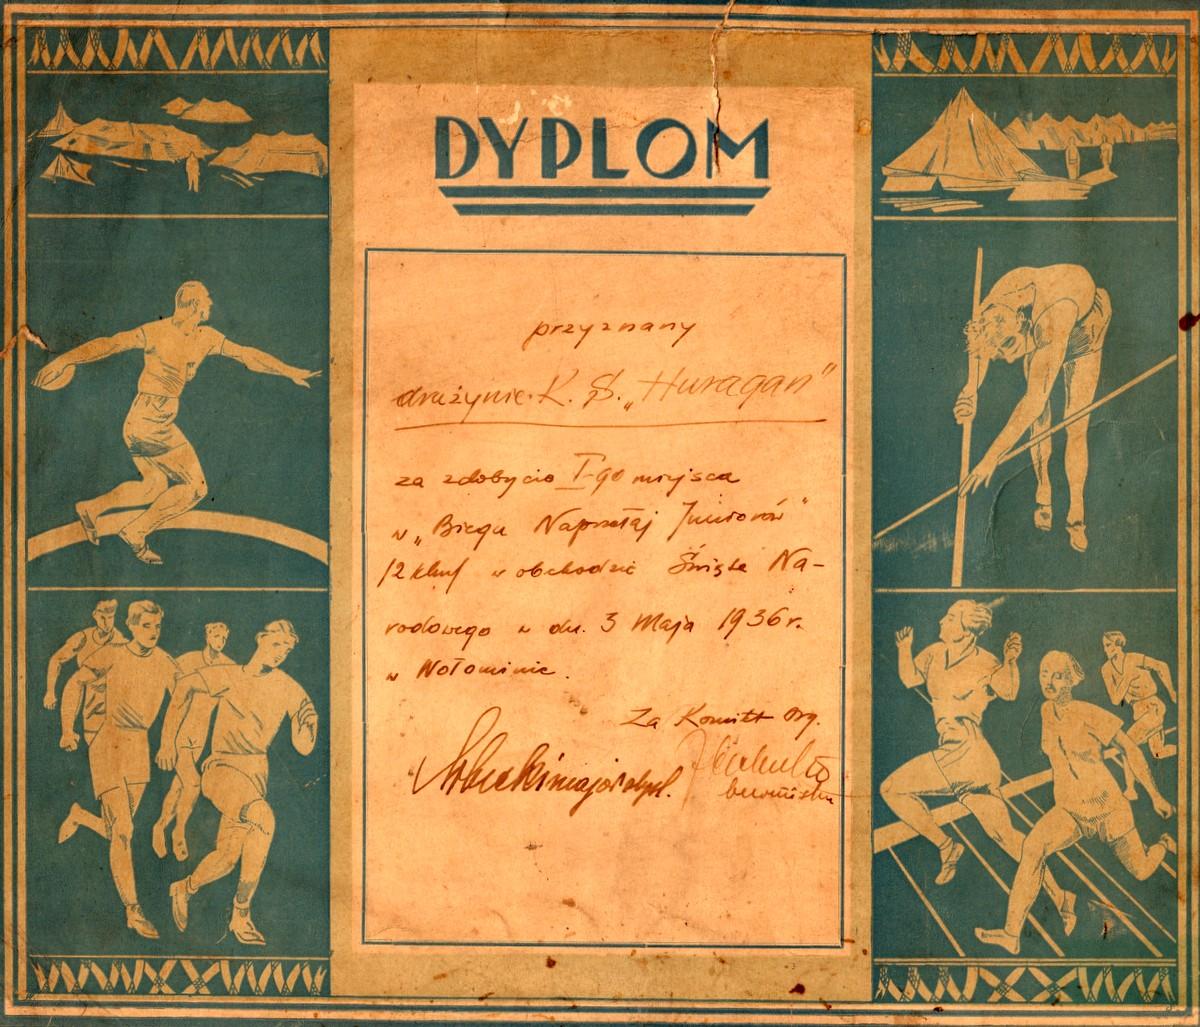 DYPLOM
przyznany
drużynie K. S. „Huragan"
za zdobycie I-go miejsca
w „Biegu Naprzełaj Juniorów"
/2 klm/ w obchodzie Święta Na-
rodowego w dn. 3 Maja 1936 r.
w Wołominie.
Za Komitet Org.
major